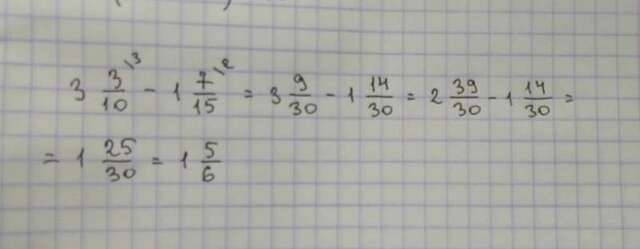 3 3/10 \3 - 1 7/15 \2 = 3 9/30 - 1 14/30 = 2 39/30 - 1 14/30 =
= 1 25/30 = 1 5/6